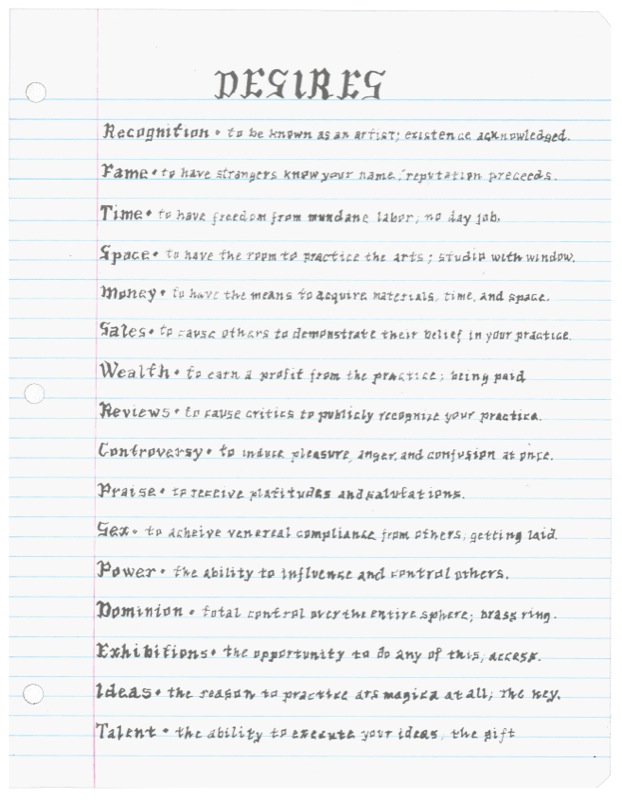 DESIRES
Recognition • to be known as an artist; existence acknowledged.
Fame • to have strangers know your name; reputation preceeds.
Time • to have freedom from mundane labor; no day job.
Space • to have the room to practice the arts; studio with window.
Money • to have the means to acquire materials, time, and space.
Sales • to cause others to demonstrate their belief in your practice.
Wealth • to earn a profit from the practice; being paid
Reviews • to cause critics to publicly recognize your practice.
Controversy • to induce pleasure, anger, and confusion at once.
Praise • to receive platitudes and salutations.
Sex • to acheive venereal compliance from others, getting laid.
Power • the ability to influence and control others.
Dominion • total control over the entire sphere; brass ring.
Exhibitions • the opportunity to do any of this, access.
Ideas • the reason to practice ars magica at all; the key.
Talent • the ability to execute your ideas, the gift